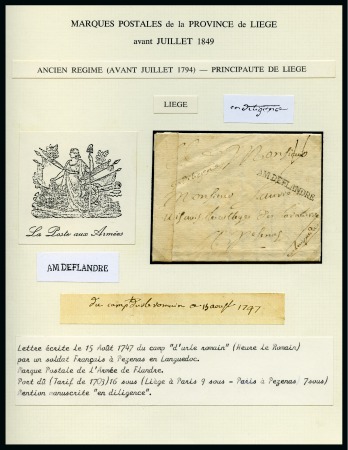 MARQUES POSTALES de la PROVINCE de LIEGE
avant JUILLET 1849
ANCIEN REGIME (AVANT JUILLET 1794) — PRINCIPAUTE DE LIEGE
LIEGE
en diligence
AM.DEFLANDRE
La Poste aux Armées
AM.DEFLANDRE
du camp d'urle romain ce 15 aoust 1747
Lettre écrite le 15 Août 1747 du camp "d'urle romain" (Heure le Romain)
par un soldat Français à Pezenas en Languedoc.
Marque Postale de l'Armée de Flandre.
Port dû (Tarif de 1703) 16 sous (Liège à Paris 9 sous - Paris à Pezenas 7sous)
Mention manuscrite "en diligence".